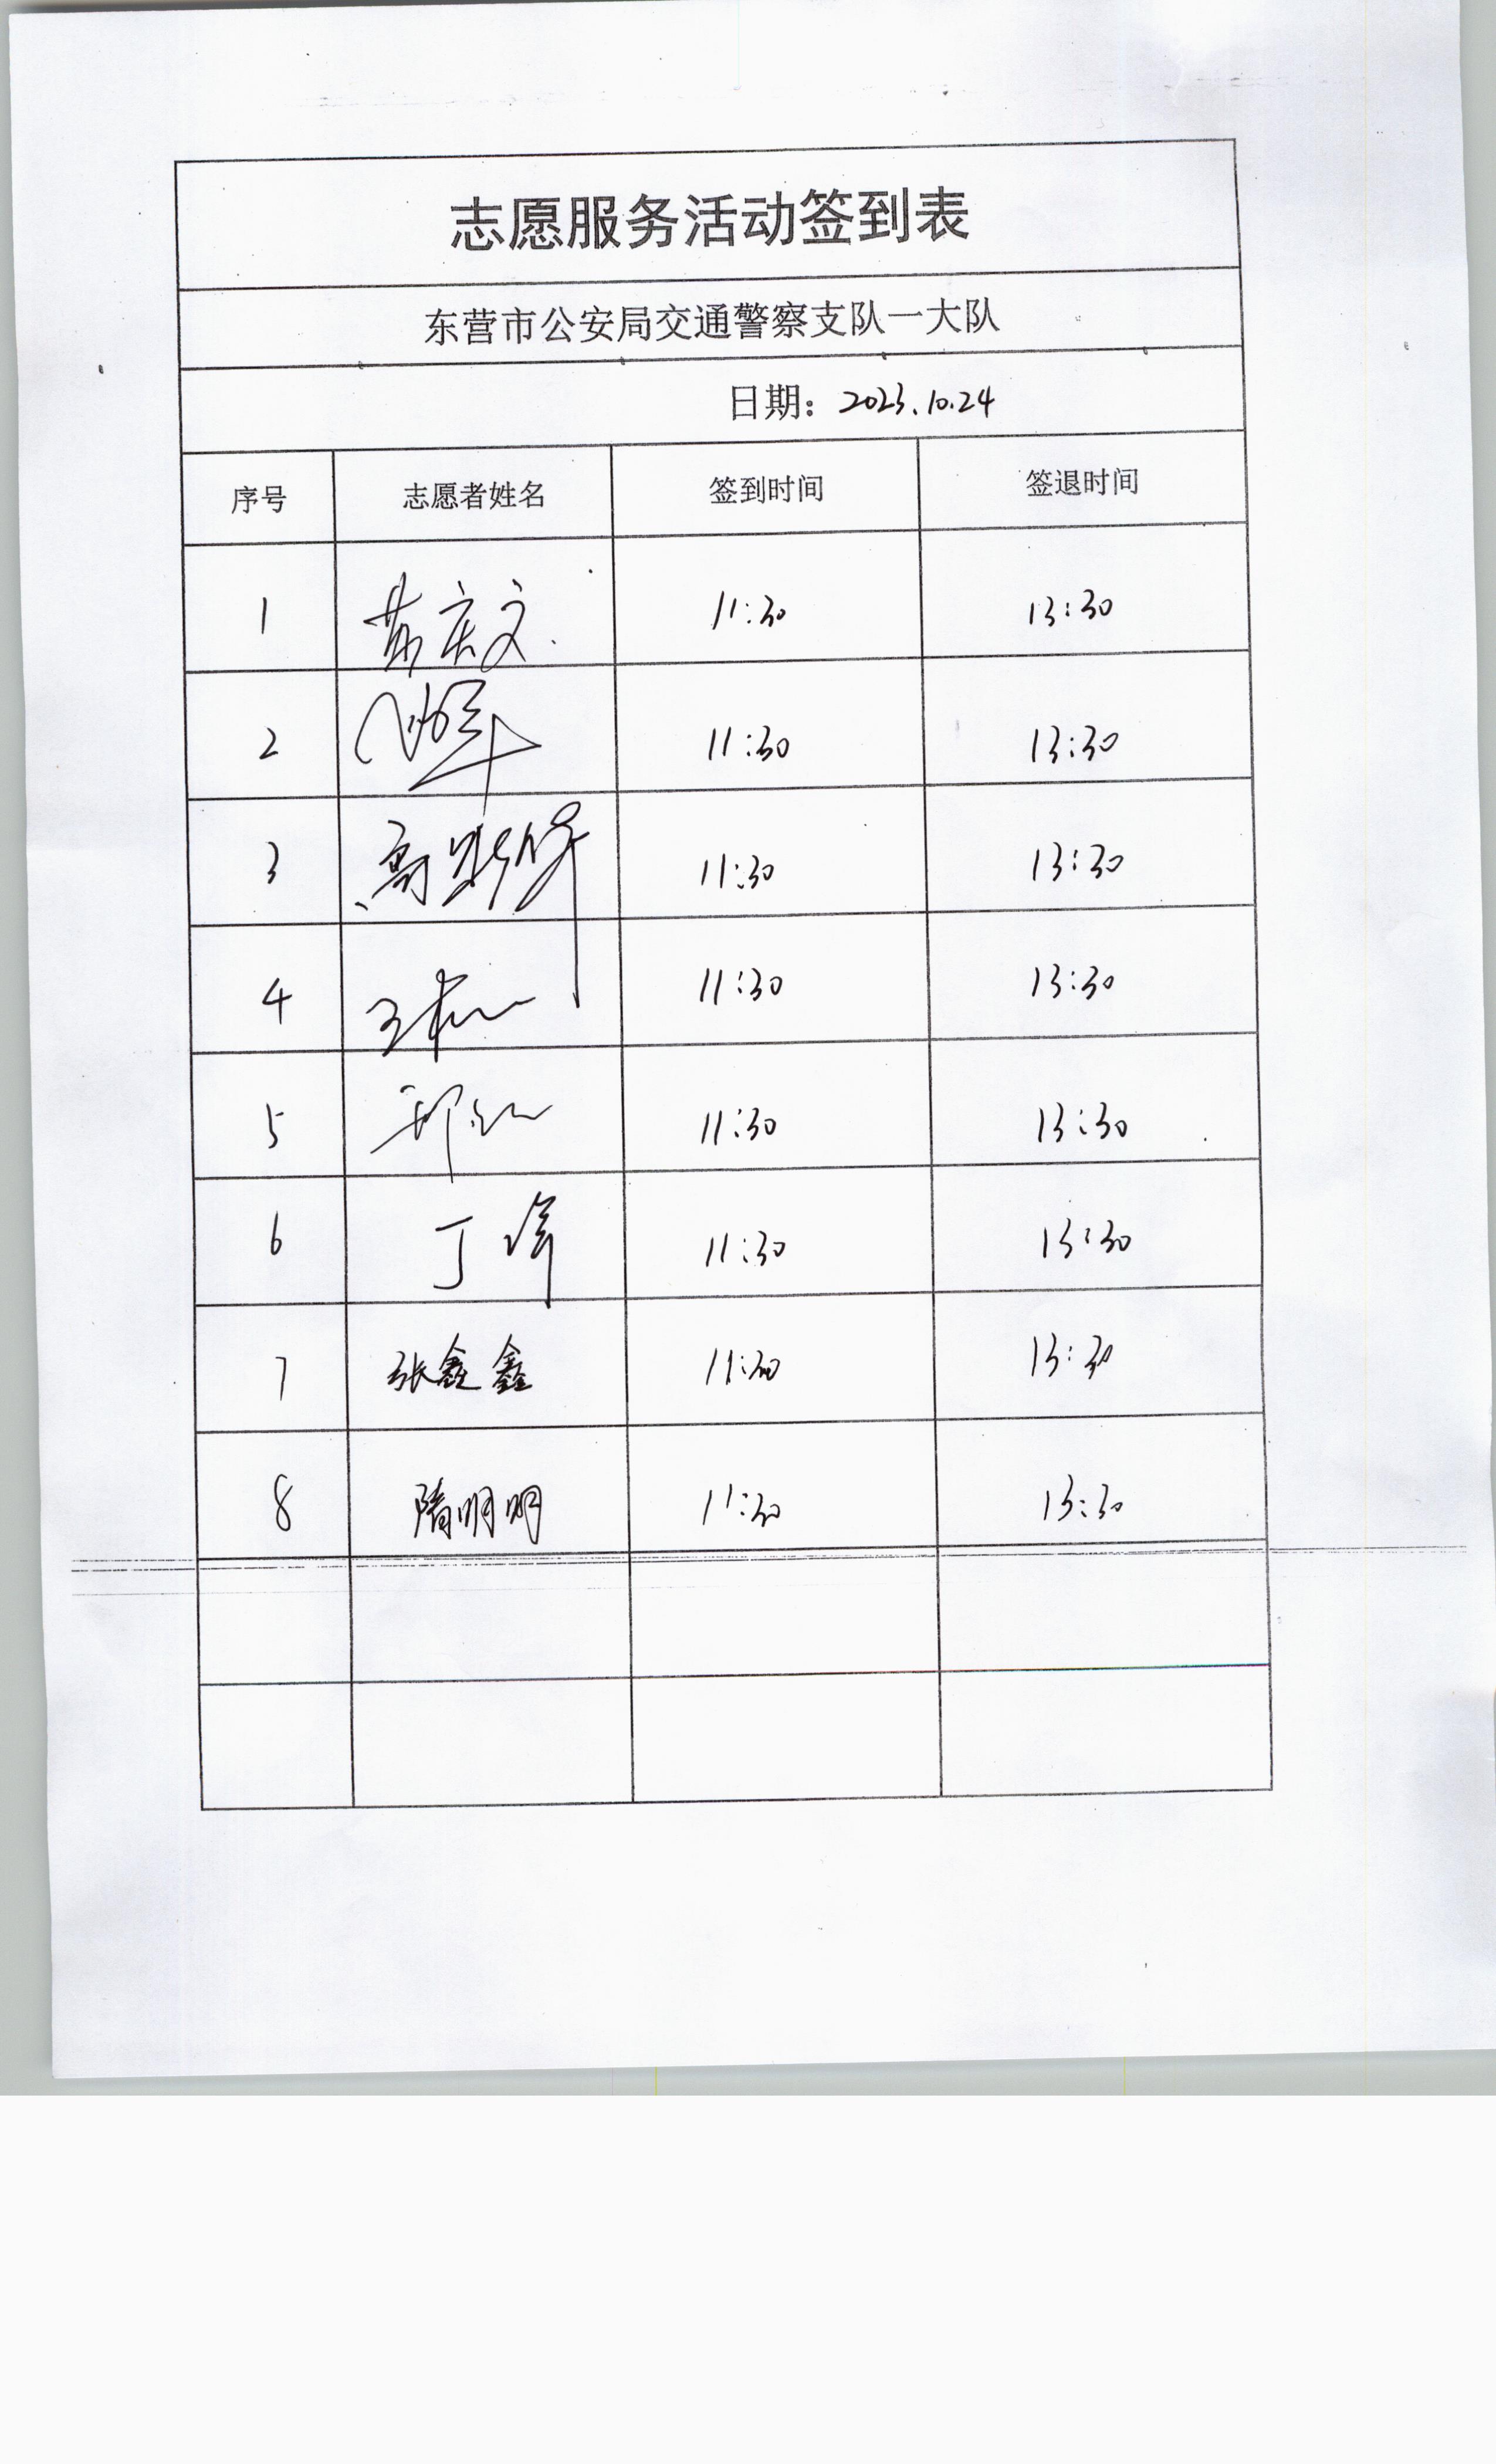 志愿服务活动签到表
东营市公安局交通警察支队一大队
日期：2023.10.24
序号 志愿者姓名 签到时间 签退时间
1 苏庆文 11:30 13:30
2 11:30 13:30
3 高 11:30 13:30
4 王 11:30 13:30
5 11:30 13:30
6 丁 11:30 13:30
7 张鑫鑫 11:30 13:30
8 隋明明 11:30 13:30